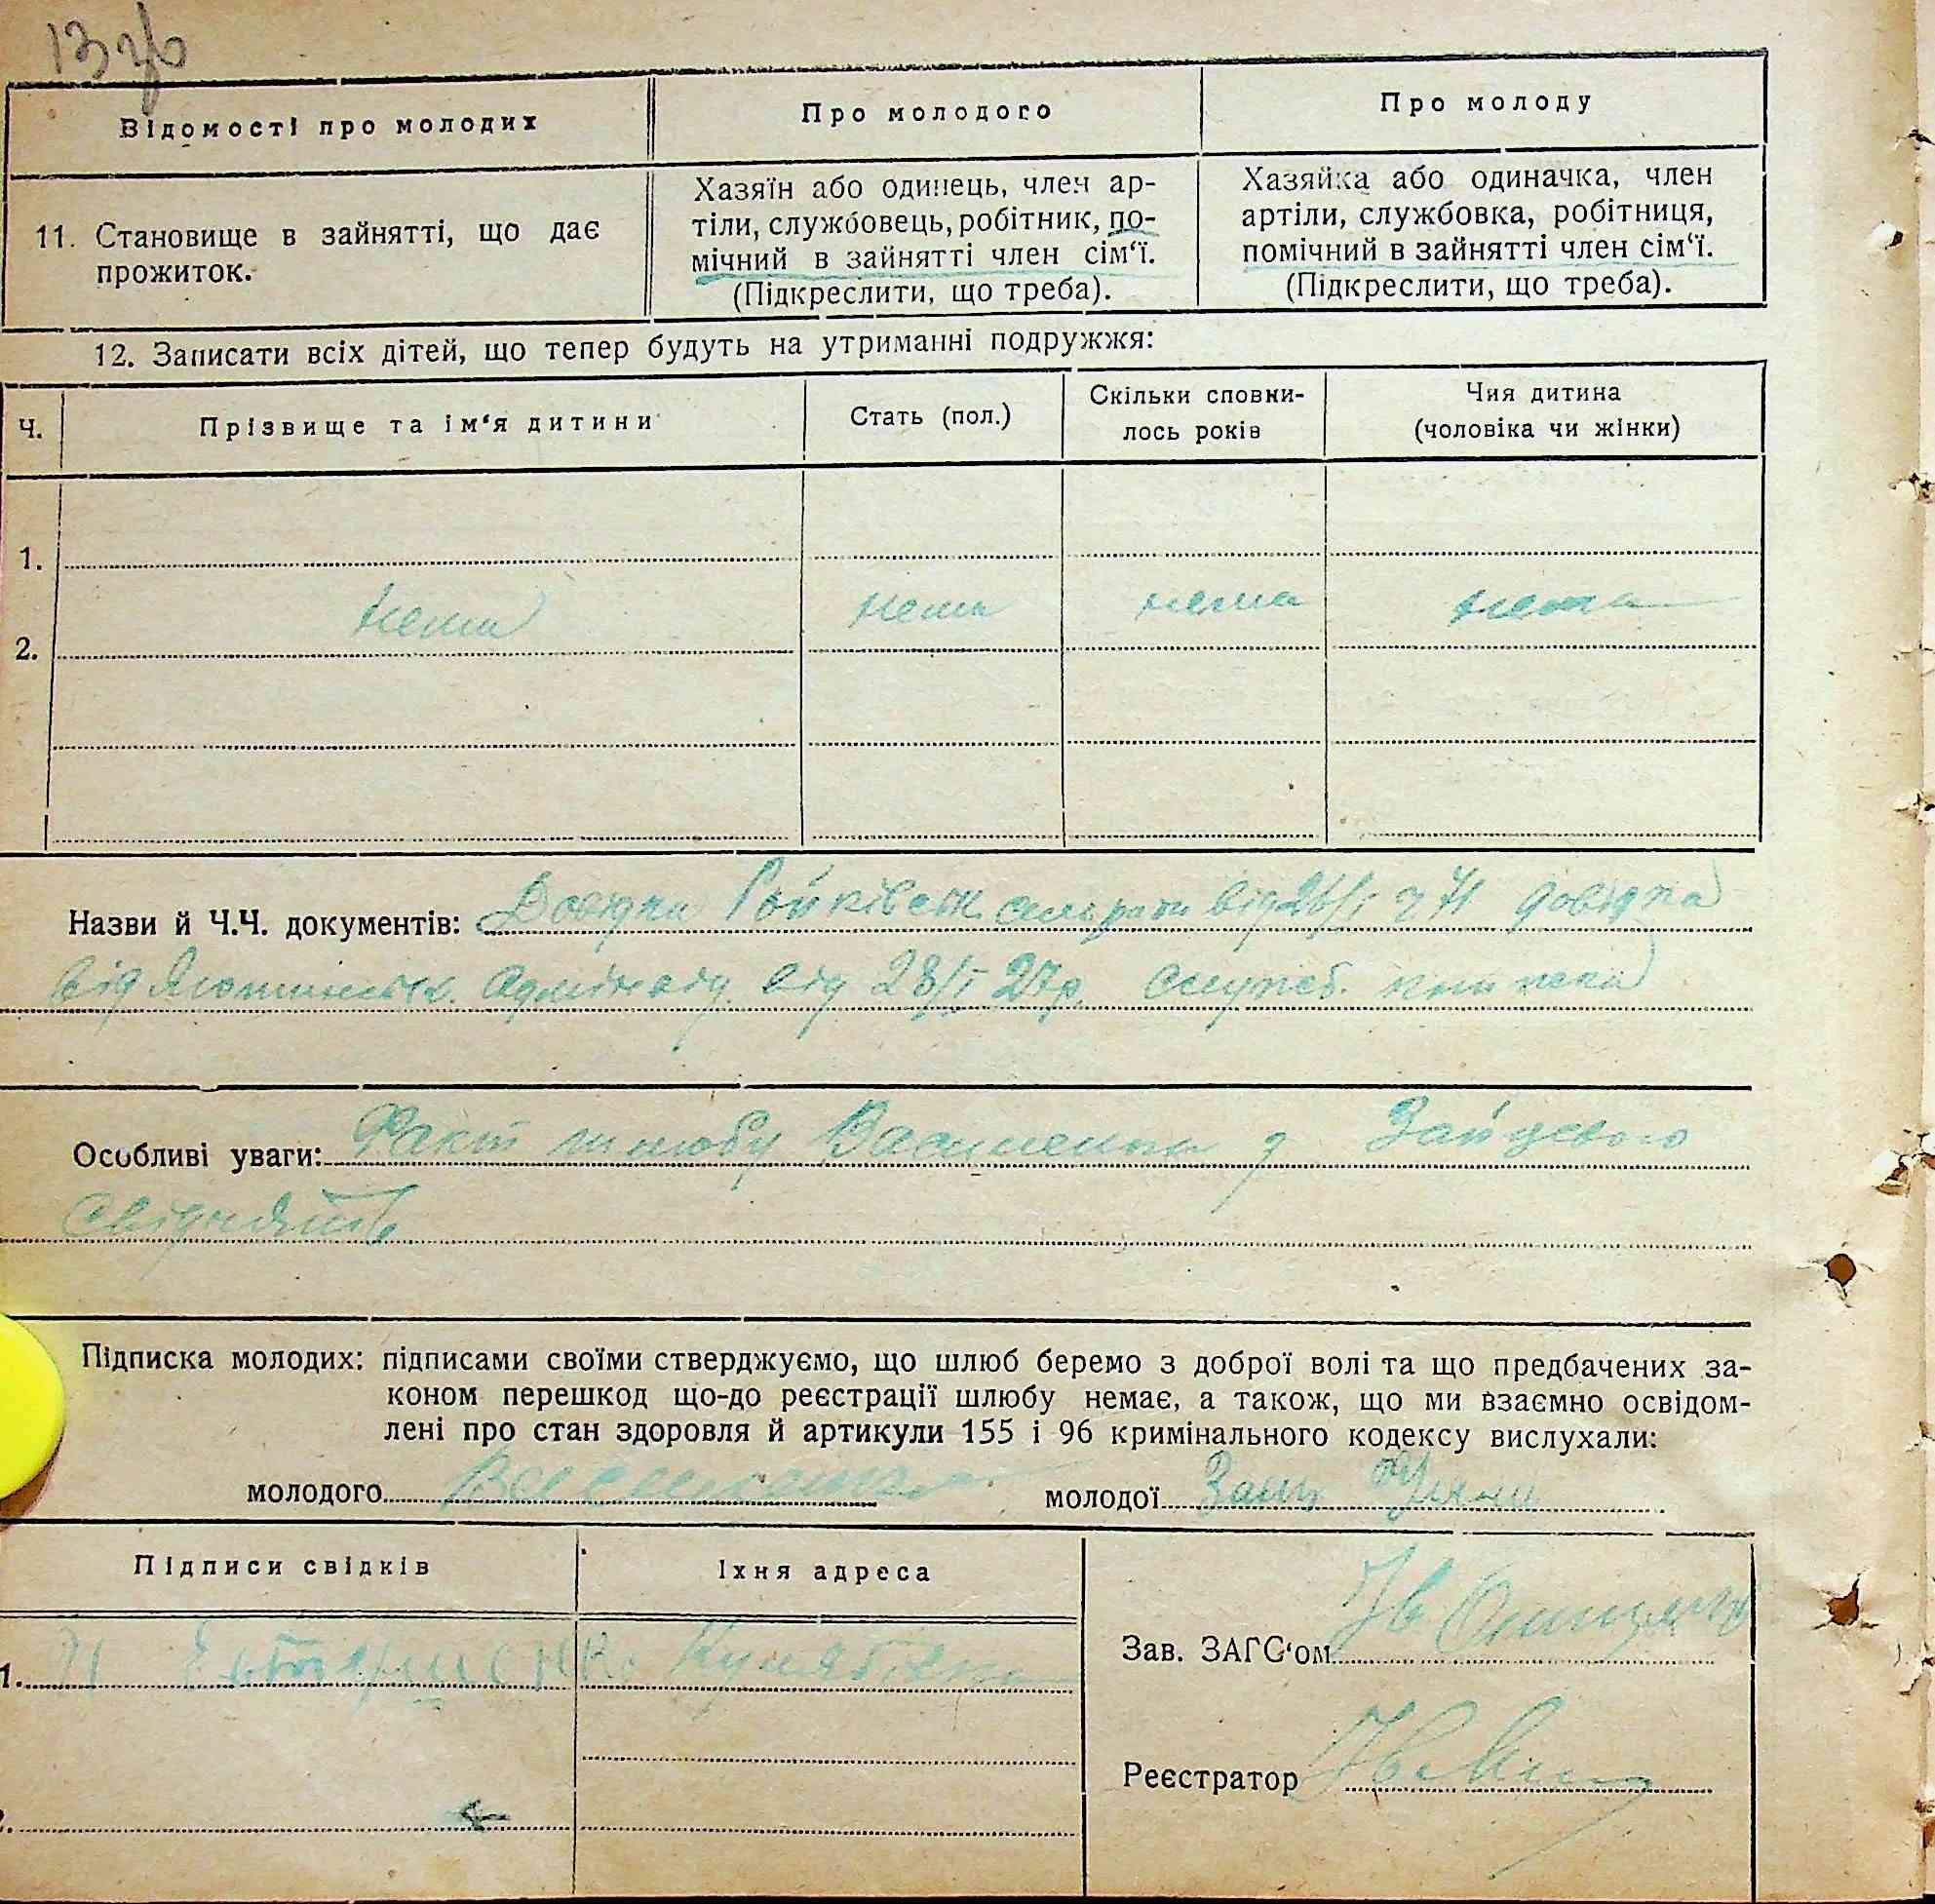 13 зв
Відомості про молодих
Про молодого
Про молоду
11. Становище в зайнятті, що дає
прожиток.
Хазяїн або одинець, член ар-
тіли, службовець, робітник, по-
мічний в зайнятті член сім‘ї.
(Підкреслити, що треба).
Хазяйка або одиначка, член
артіли, службовка, робітниця,
помічний в зайнятті член сім‘ї.
(Підкреслити, що треба).
12. Записати всіх дітей, що тепер будуть на утриманні подружжя:
Ч.
Прізвище та ім‘я дитини
Стать (пол.)
Скільки сповни-
лось років
Чия дитина
(чоловіка чи жінки)
1.
нема нема нема нема
2.
Назви й Ч.Ч. документів: Довідка сельради від 26/I ч 71 довідка
від адмінвід. від 28/I 27р. служб.
Особливі уваги: Факт шлюбу Василенка з Зайцевою
свідчать
Підписка молодих: підписами своїми стверджуємо, що шлюб беремо з доброї волі та що предбачених за-
коном перешкод що-до реєстрації шлюбу немає, а також, що ми взаємно освідом-
лені про стан здоровля й артикули 155 і 96 кримінального кодексу вислухали:
молодого
молодої
Підписи свідків
Їхня адреса
1.
Кулябівка
Зав. ЗАГС‘ом
Реєстратор
2.